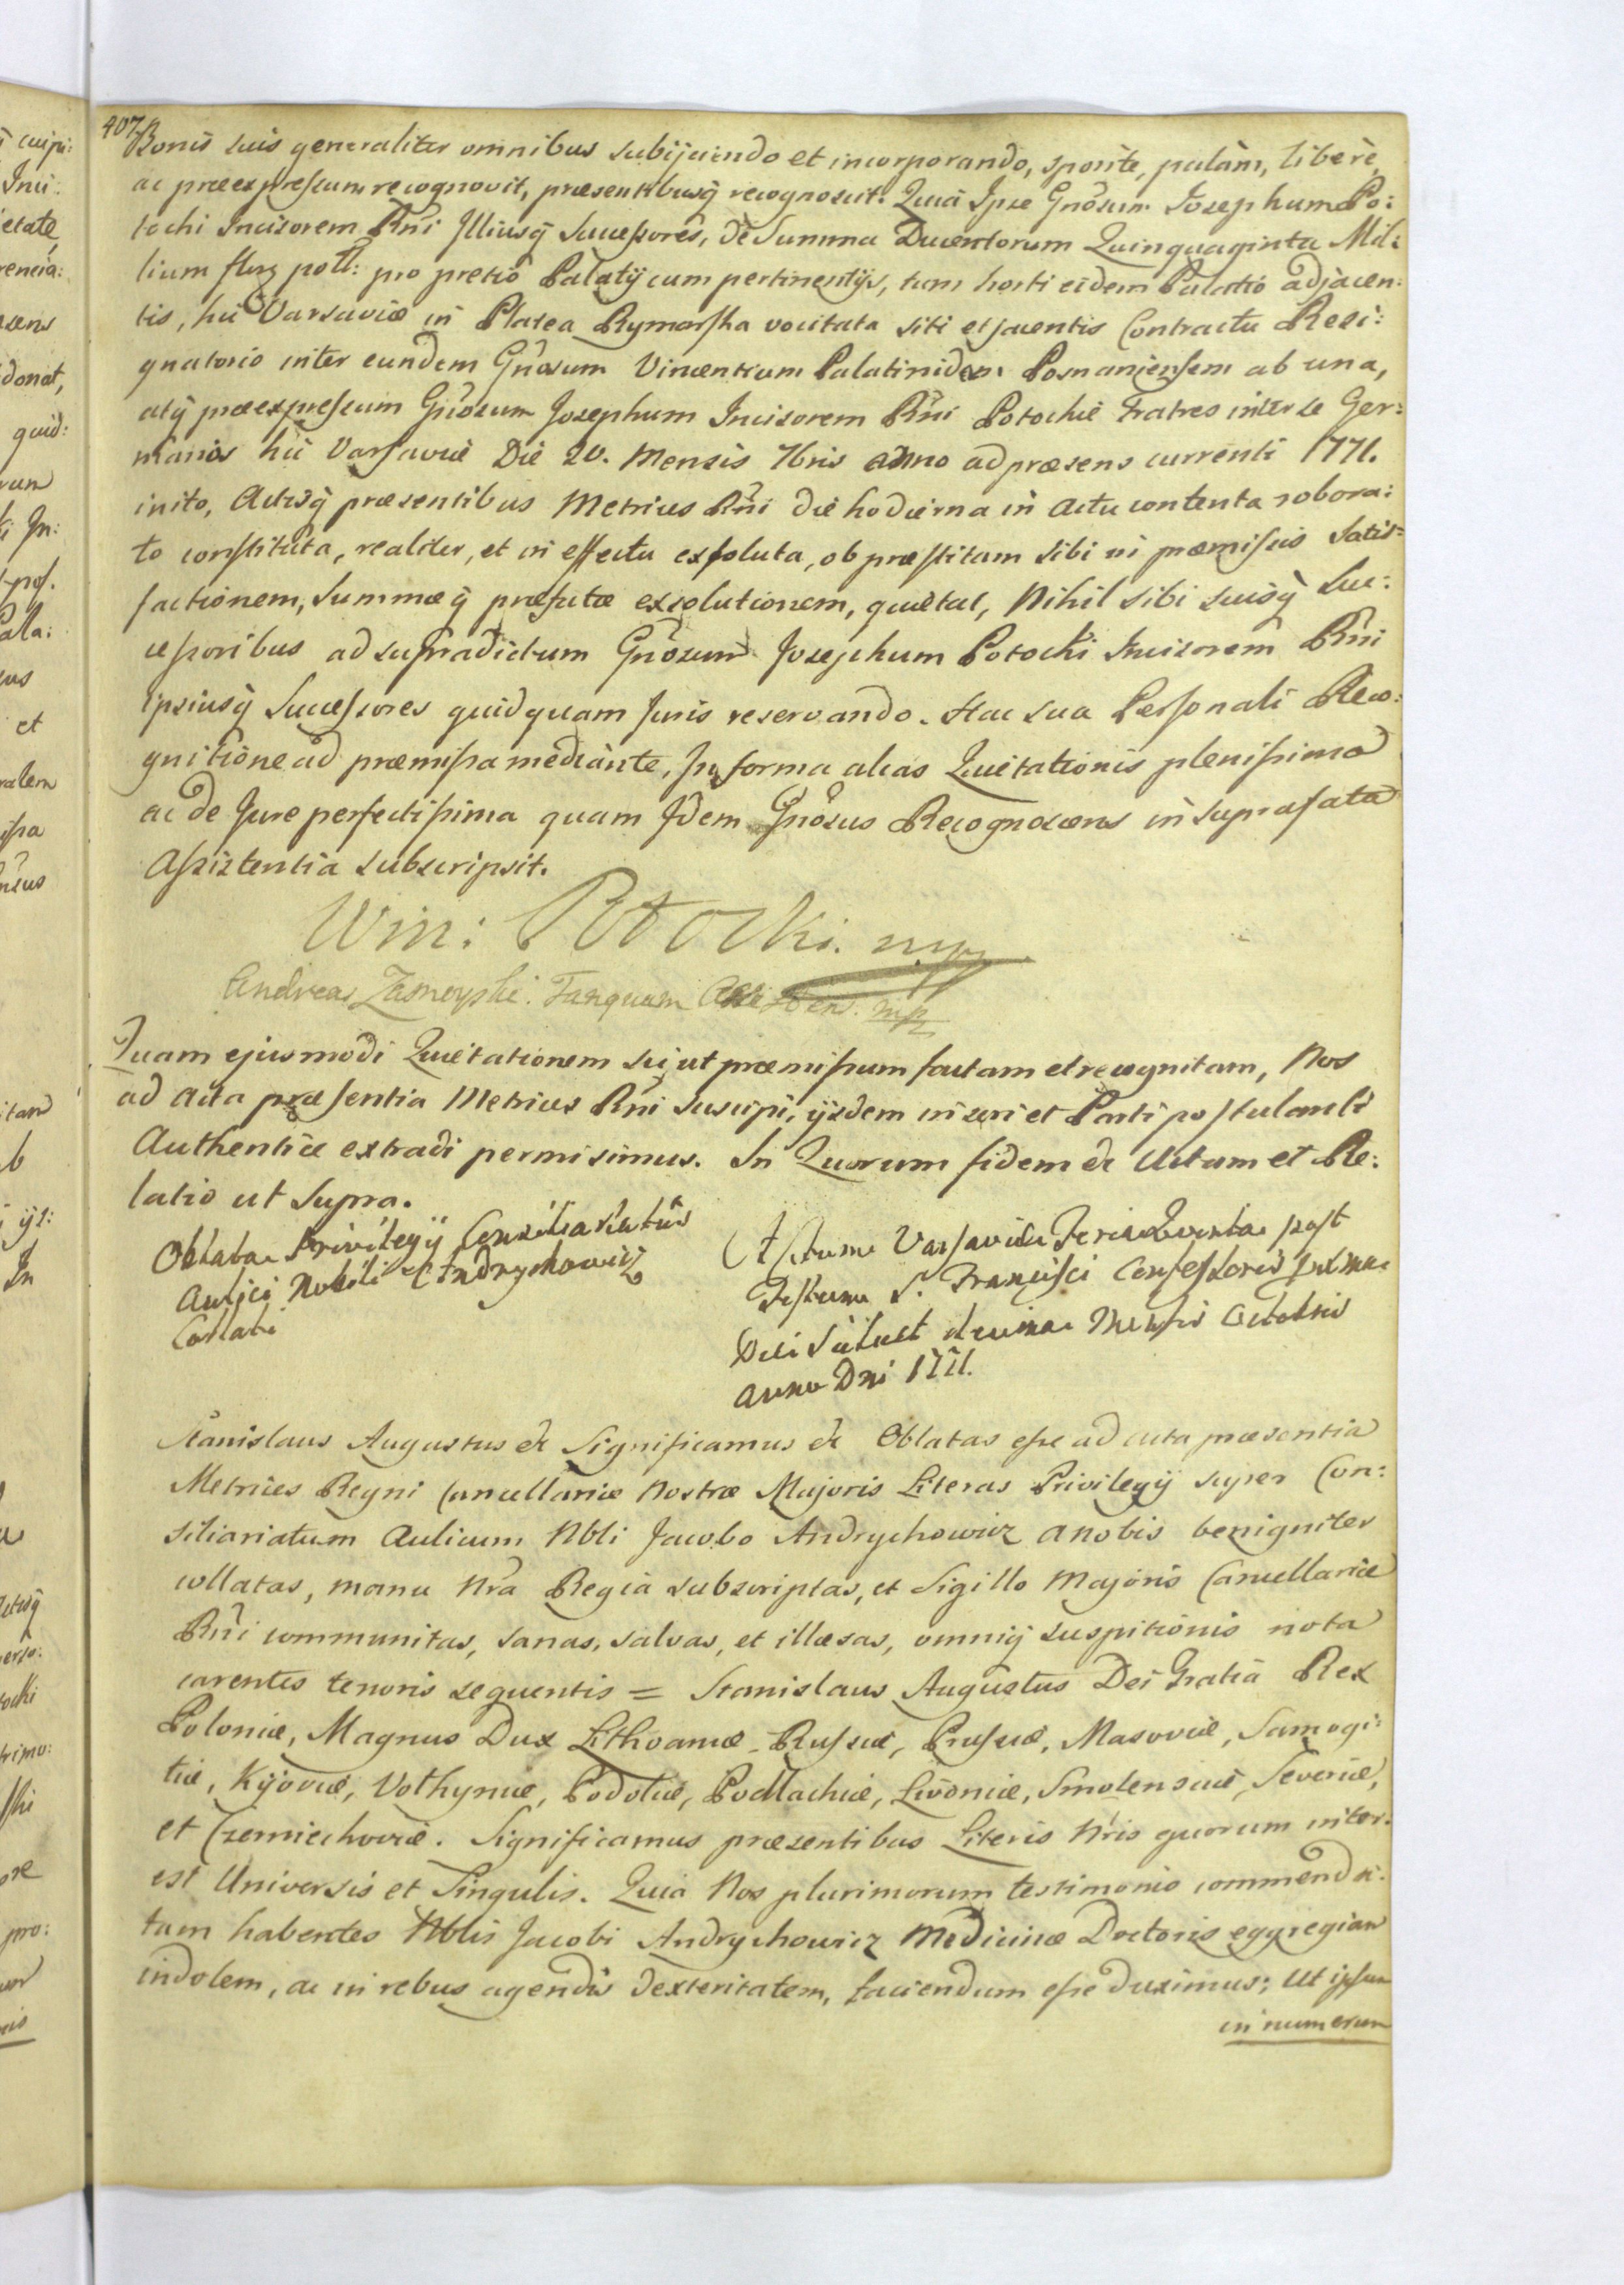 407
Bonis suis generaliter omnibus subijciendo et incorporando, sponte, palàm, liberè,
ac præexpressum recognovit, præsentibusq̃ recognoscit. Quià Ipse Gñosum Josephum Po:
tocki Incisorem Rñi Illiusq̃ Successores, de Summa Ducentorum Quinquaginta Mil:
lium flor poll: pro pretio Palatij cum pertinentijs, tum horti eidem Palatio adjacen:
tis, hic Varsaviæ in Platea Rymarska vocitata siti et jacentis Contractu Resi:
gnatorio inter eundem Gñosum Vincentium Palatinidem Posnaniensem ab una,
atq̃ præexpressum Gñosum Josephum Incisorem Rñi Potockie Fratres inter se Ger:
manos hic Varsaviæ Die 20. Mensis 7bris anno ad præsens currenti 1771.
inito, Actisq̃ præsentibus Metrices Rñi die hodierna in actu contenta robora:
to constituta, realiter, et in effectu exsoluta, ob præstitam sibi in præmissis Satis:
factionem, Summæq̃ præfatæ exsolutionem, quietat, Nihil sibi suisq̃ Suc:
cessoribus ad supradictum Gñosum Josephum Potocki Incisorem Rñi
ipsiusq̃ Successores quidquam Juris reservando. Hac sua Personali Reco:
gnitione ad præmissa mediante, In forma alias Quietationis plenissima
ac de Jure perfectissima quam Idem Gñosus Recognoscens in suprafata
Assistentia subscripsit.
Win: Potocki. mpp
Andreas Zamoyski. Tanquam Assistens. mp
Quam ejusmodi Quietationem sic, ut præmissum factam et recognitam, Nos
ad Acta præsentia Metrices Rñi suscipi, ijsdem inseri et Parti postulanti
Authenticè extradi permisimus. In Quorum fidem &c Actum et Re:
latio ut Supra.
Oblata Privilegij Consiliariatûs
Aulici Nobili Andrychowicz
Collati
Actum Varsaviæ Feria Quinta post
Festum S. Francisci Confessoris proxima
Die Scilicet decima Mensis Octobris
Anno Dni 1771.
Stanislaus Augustus &c Significamus &c Oblatas esse ad acta præsentia
Metrices Regni Cancellariæ Nostræ Majoris Literas Privilegij super Con:
siliariatum Aulicum Nbli Jacobo Andrychowicz a nobis benigniter
collatas, manu Nra Regia subscriptas, et Sigillo Majoris Cancellariæ
Rñi communitas, sanas, salvas, et illæsas, omniq̃ suspitionis nota
carentes tenoris sequentis = Stanislaus Augustus Dei Gratia Rex
Poloniæ, Magnus Dux Lithvaniæ, Russiæ, Prussiæ, Masoviæ, Samogi:
tiæ, Kijoviæ, Volhyniæ, Podoliæ, Podlachiæ, Livoniæ, Smolensciæ, Severiæ,
et Czerniechoviæ. Significamus præsentibus Literis Nris quorum inter:
est Universis et Singulis. Quia Nos plurimorum testimonio commenda:
tam habentes Nblis Jacobi Andrychowicz Medicinæ Doctoris eggregiam
indolem, ac in rebus agendis dexteritatem, faciendum esse duximus; Ut ipsum
in numerum